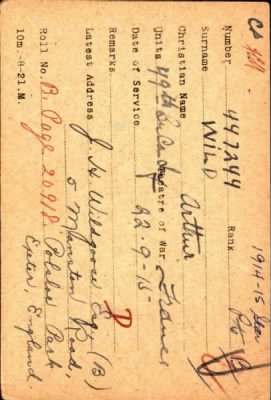 CA
1914-15 Star
Number 447244 Rank Pte
Surname WILD
Christian Name Arthur
Units 49th Bn Can Inf Theatre of War France
Date of Service 22-9-15-
Remarks D
Latest Address J. H. Wildgoose Esq (B)
5 Manston Road,
Polsloe Park
Exeter, England.
Roll No. B. Page 20918.
10m.-8-21.M.